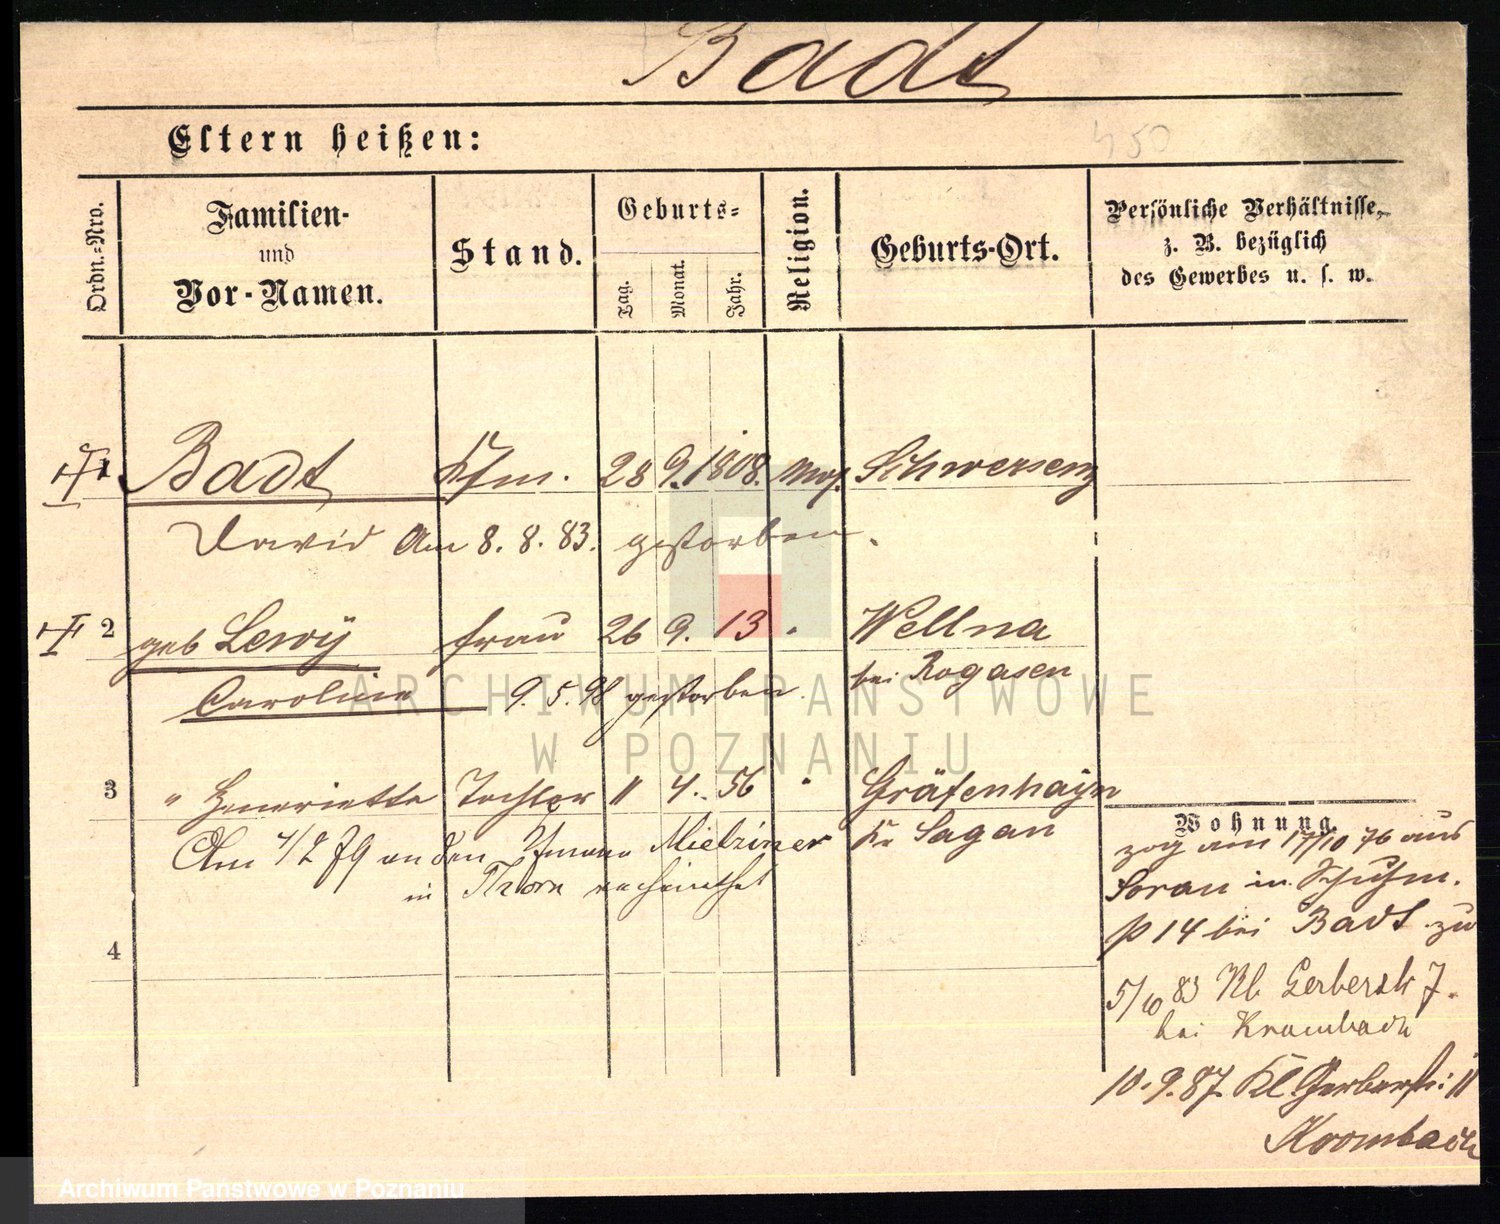 Badt
Eltern heißen:
450
Ordn.=Nro.
Familien-
und
Vor-Namen.
Stand.
Geburts=
Tag.
Monat.
Jahr.
Religion.
Geburts-Ort.
Persönliche Verhältnisse,
z. B. bezüglich
des Gewerbes u. s. w.
1 Badt Kfm. 28 9. 1808. mos. Schwersenz
David Am 8. 8. 83. gestorben.
2 geb Lewÿ Frau 26 9. 13 " Wellna
bei Rogasen
Caroline 9. 5. 98 gestorben.
3 " Henriette Tochter 11 4. 56 " Gräfenhayn
Kr Sagan
Am 4/2 79 an den Kfmann Mielziner
in Thorn verheirathet
4
Wohnung.
zog am 17/10 76 aus
Soran in Schuhm.
p 14 bei Badt zu
5/10 83 Kl. Gerberstr 7.
bei Krambach
10. 9. 87. Kl Gerberstr: 11
Krombach
ARCHIWUM PAŃSTWOWE
W POZNANIU
Archiwum Państwowe w Poznaniu